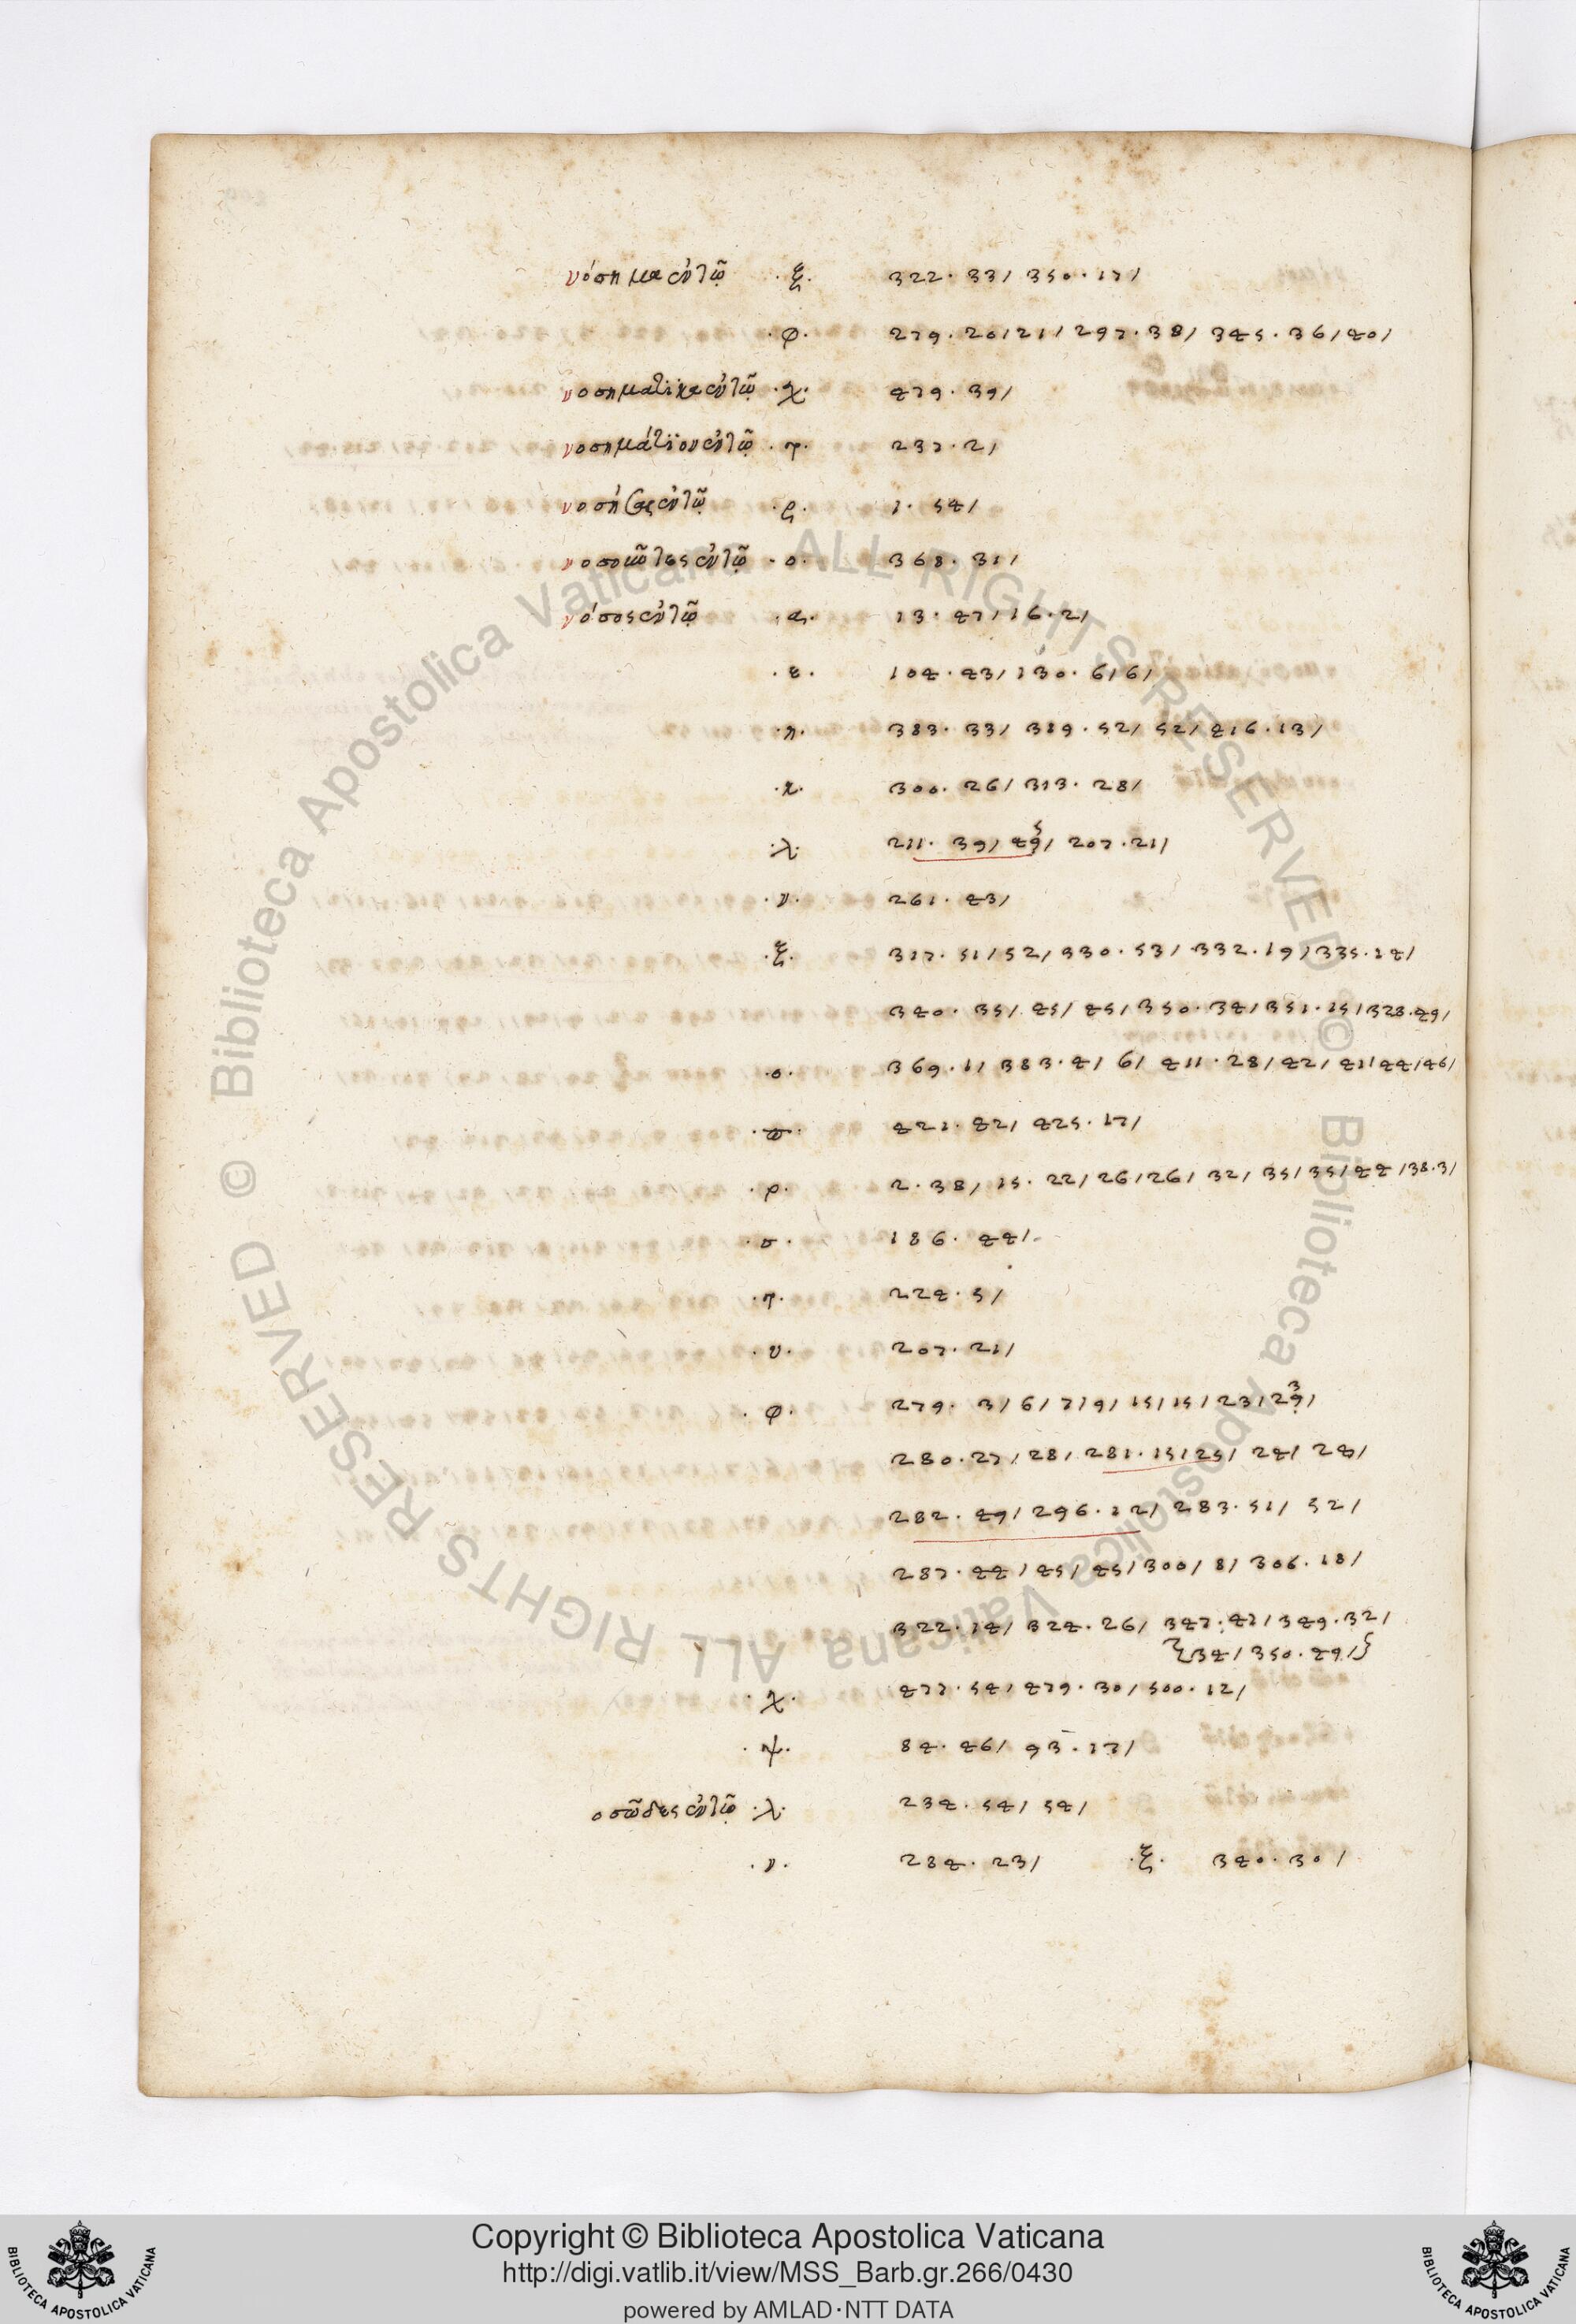 νόσημα ἐν τῷ ·ξ· 322·33/ 350·17/
·φ· 279·20/21/ 297·38/ 345·36/40/
νοσηματικα ἐν τῷ ·χ· 479·39/
νοσημάτϊον ἐν τῷ ·τ· 237·2/
νοσήσας ἐν τῷ ·ρ· 1·54/
νοσοῦντες ἐν τῷ ·ο· 368·31/
νόσος ἐν τῷ ·α· 13·47/ 16·2/
·ε· 104·43/ 130·6/6/
·η· 383·33/ 389·52/ 52/ 416·13/
·κ· 300·26/ 313·28/
·λ· 211·39/ 49/ 207·21/
·ν· 261·43/
·ξ· 317·51/52/ 330·53/ 332·19/ 335·14/
340·35/ 45/ 45/ 350·34/ 351·15/ 328·49/
·ο· 369·1/ 383·4/ 6/ 411·28/ 42/ 41/44/46/
·π· 421·42/ 425·17/
·ρ· 2·38/ 15·22/26/26/ 32/ 35/35/44/38·3/
·σ· 186·44/
·τ· 224·5/
·υ· 207·21/
·φ· 279·3/6/7/9/15/15/23/29/
280·27/28/ 281·15/25/ 24/ 24/
282·49/ 296·12/ 283·51/ 52/
287·44/45/45/300/8/ 306·18/
322·14/ 324·26/ 347·41/ 349·32/
{34/ 350·29/}
·χ· 477·54/ 479·30/ 500·12/
·ψ· 84·46/ 93·17/
οσῶδες ἐν τῷ ·λ· 234·54/ 54/
·ν· 284·23/ ·ξ· 340·30/
Copyright © Biblioteca Apostolica Vaticana
http://digi.vatlib.it/view/MSS_Barb.gr.266/0430
powered by AMLAD·NTT DATA